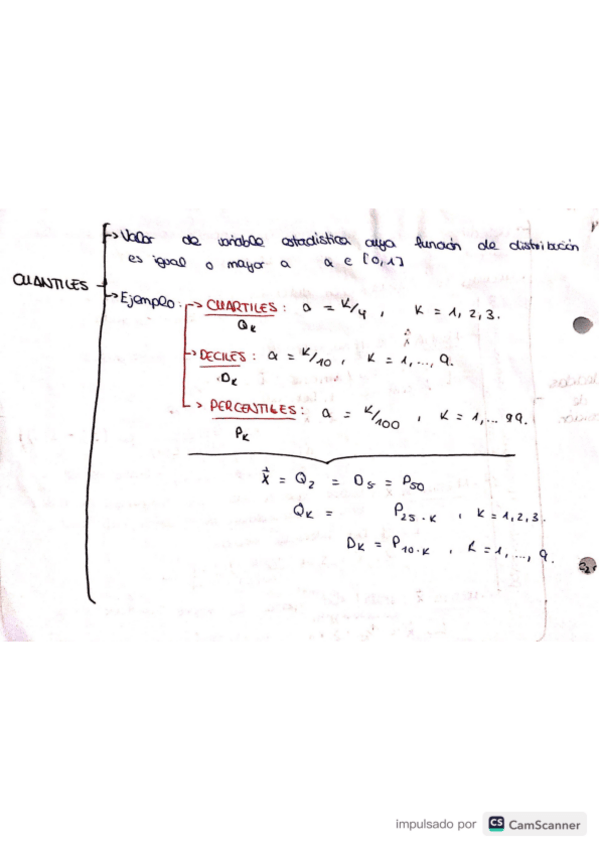 → Valor de variable estadística cuya función de distribución
es igual o mayor a a ∈ [0,1]
CUANTILES
→ Ejemplo: → CUARTILES: a = K/4, K = 1, 2, 3.
QK
→ DECILES: a = K/10, K = 1, ..., 9.
DK
→ PERCENTILES: a = K/100, K = 1, ... 99.
PK
x̃ = Q2 = D5 = P50
QK = P25·K, K = 1,2,3.
DK = P10·K, K = 1, ..., 9.
impulsado por CS CamScanner